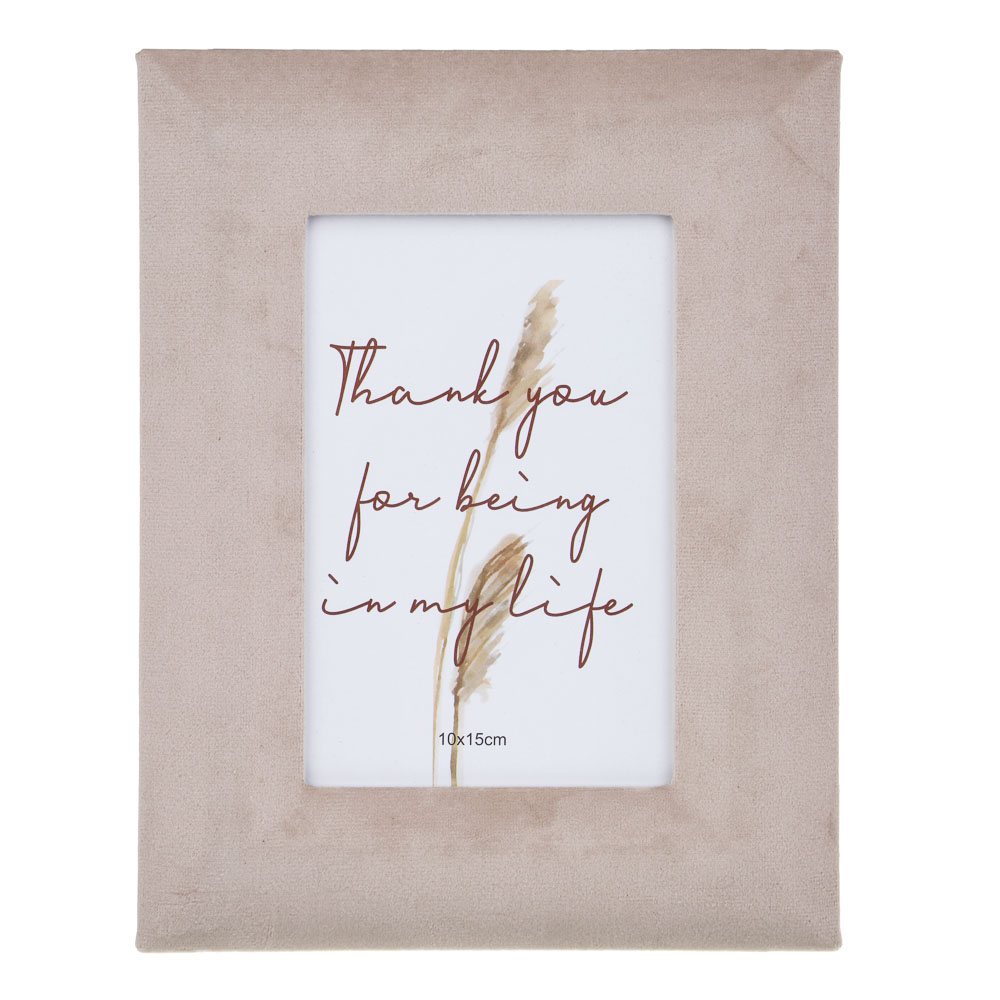 Thank you
for being
in my life
10x15cm